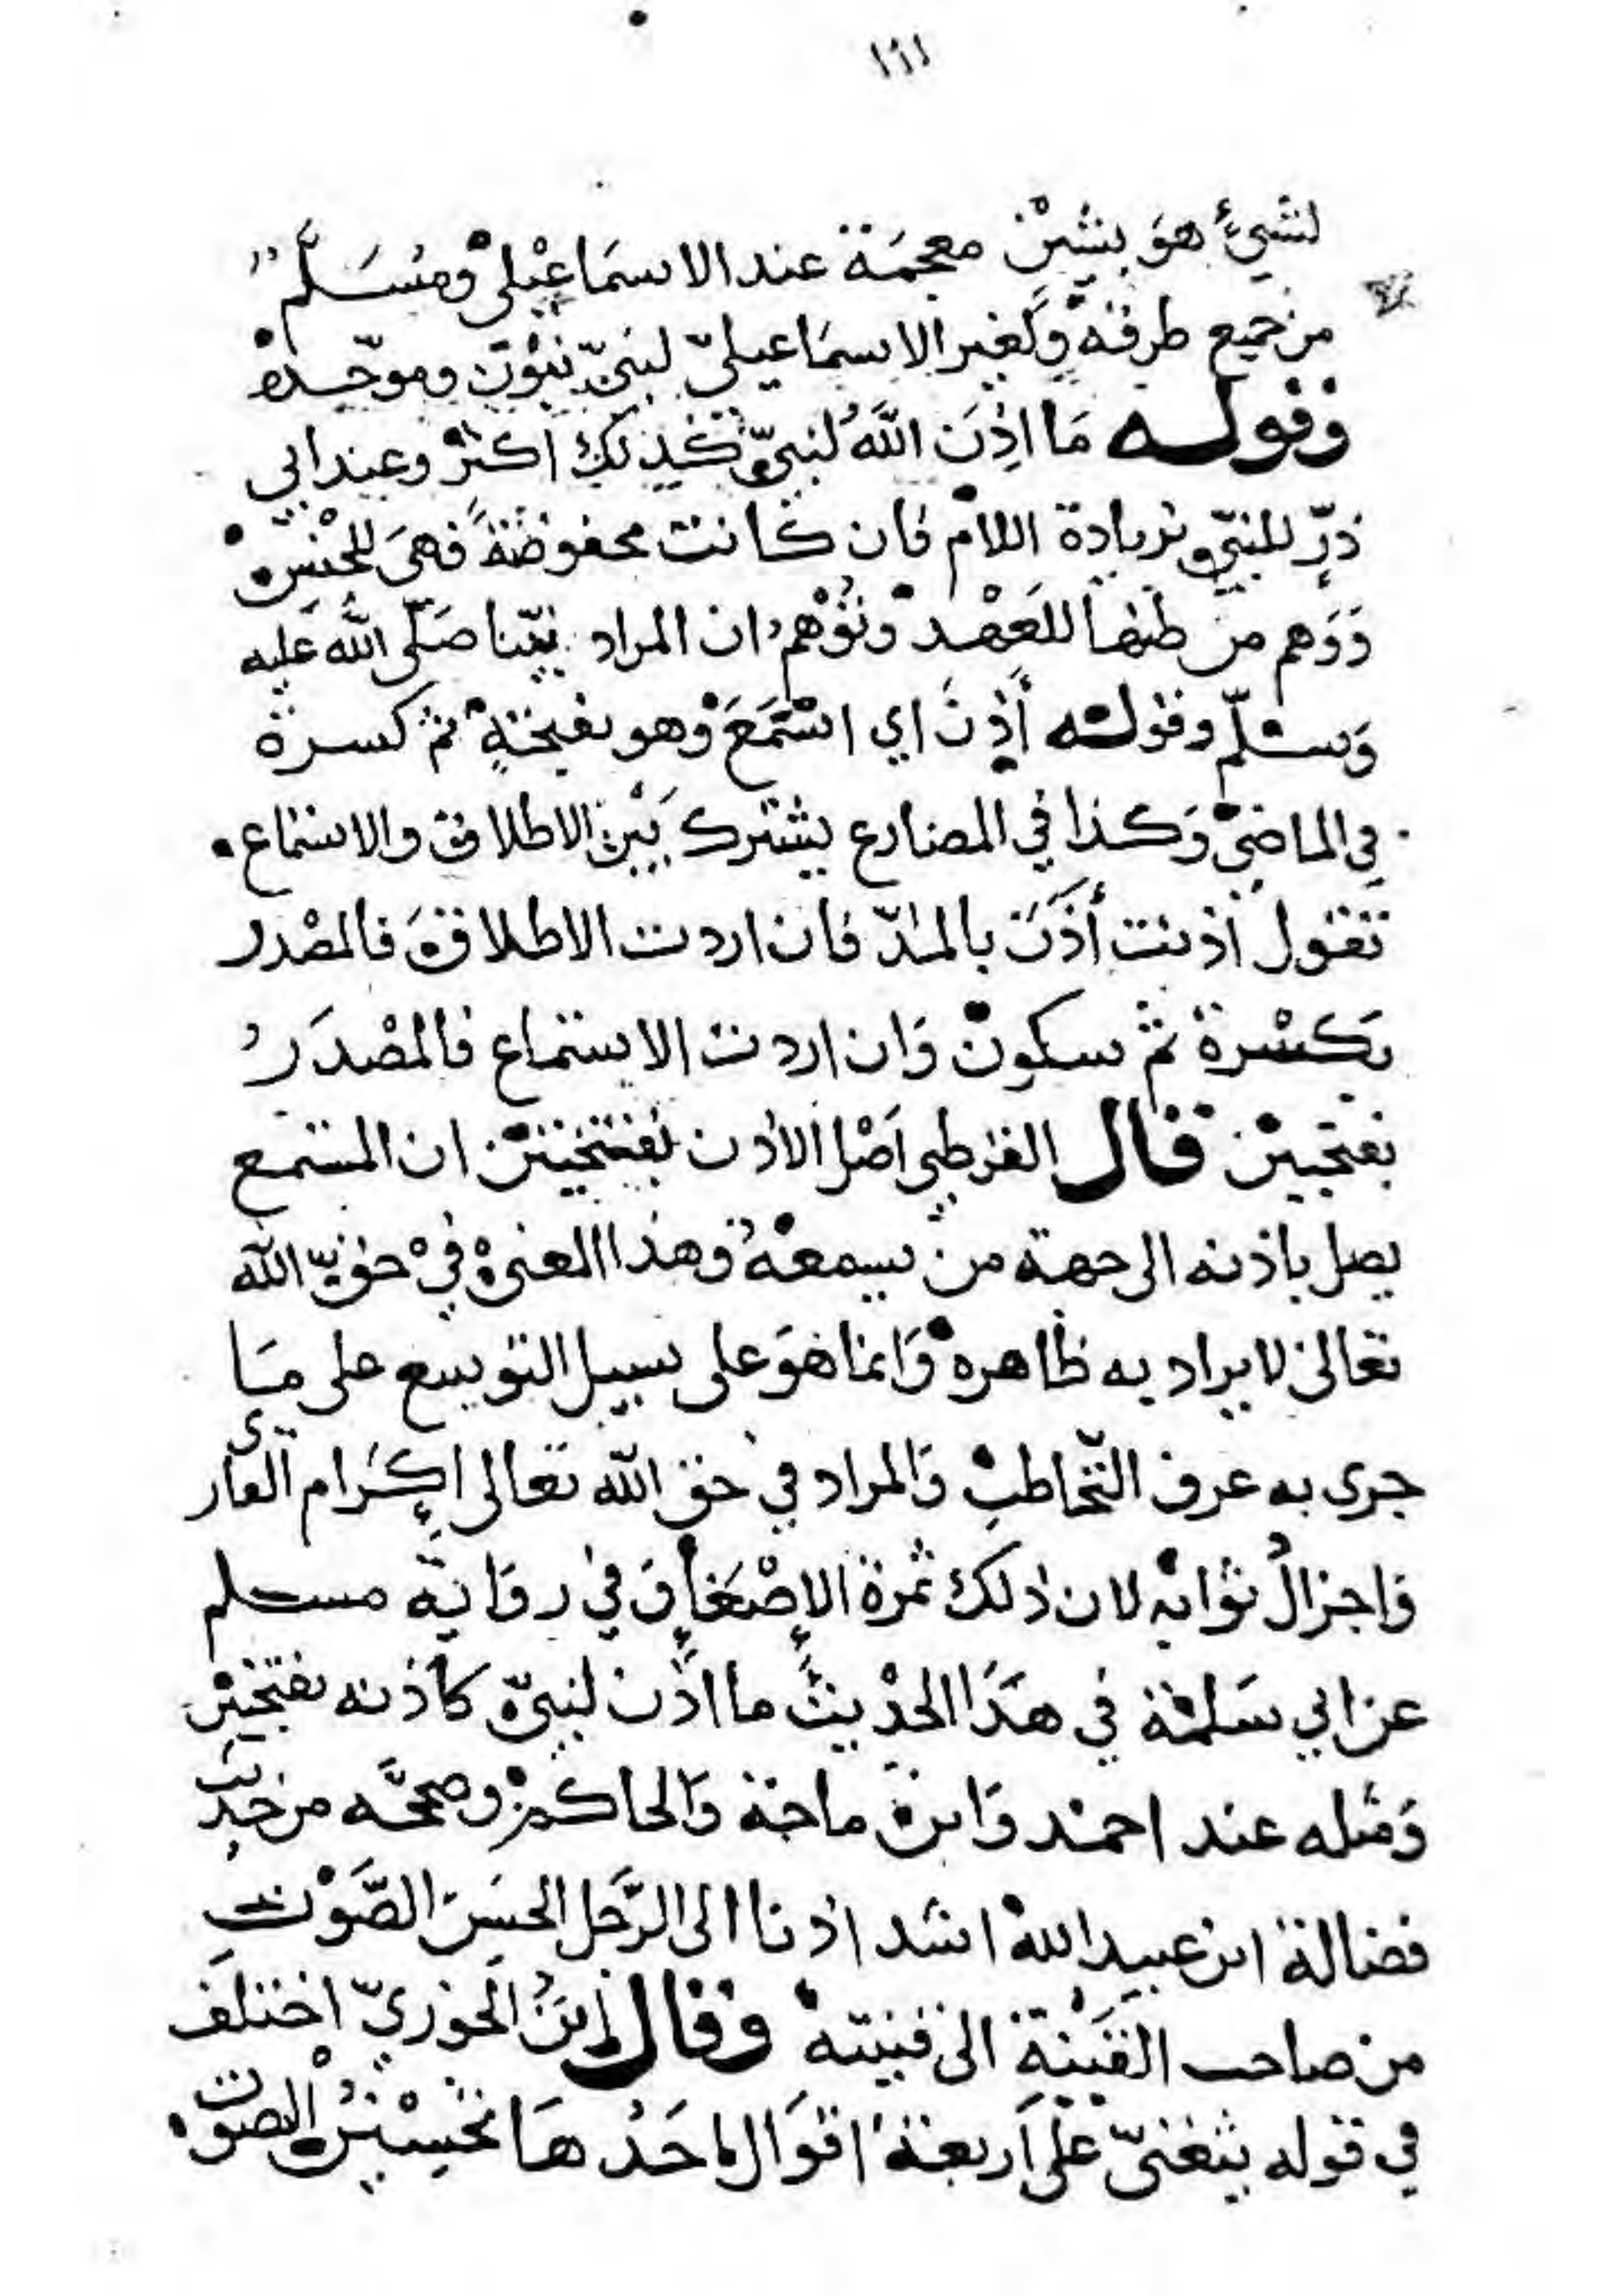 ١٦١
لشيء هو بشين معجمة عند الاسماعيلي ومسلم
من جميع طرقه ولغير الاسماعيلي لنبي بنون وموحده
وقوله مَا اذِنَ اللهُ لنبيّ كذلك اكثر وعند ابي
ذرّ للنبي بزيادة اللام فان كانت محفوظة فهي للجنس
وَوَهم من ظنها للعَهْد وتوهم ان المراد نبيّنا صَلّى الله عليه
وَسلّم وقوله أَذِنَ اي استَمَعَ وهو بفتحةٍ ثم كسرة
في الماضي وَكذا في المضارع يشترك بَيْن الاطلاق والاستماع
تقول اذنت أذَن بالمدّ فان اردت الاطلاق فالمصْدر
بكسْرة ثم سكون وَان اردت الاستماع فالمصْدَرُ
بفتحيين قال القرطبي اَصْل الاذن بفتحتين ان المستمع
يصل باذنه الى جهة من يسمعهُ وهذا المعنى في حق الله
تعالى لا يراد به ظاهره وَانما هوَ على سبيل التوسع على مَا
جرى به عرف التّخاطب وَالمراد في حق الله تعالى اكرام القارى
وَاجزالُ ثوابه لان ذلك ثمرة الإصْغَا وفي روايَة مسلم
عن ابي سَلمة في هَذَا الحدْيث ما اذن لنبيّ كاذنه بفتحتين
وَمثله عند احمد وَابن ماجة وَالحاكم وصححَّه من حديث
فضالة ابن عبيد الله اشد اذنا الى الرَّجل الحسَن الصَّوْت
من صاحب القَيْنة الى قينته وقال ابنُ الجوزيّ اختلف
في قوله يتغنىّ على اَربعة اقوَال احَدُهَا تحسِيْنُ الصوت